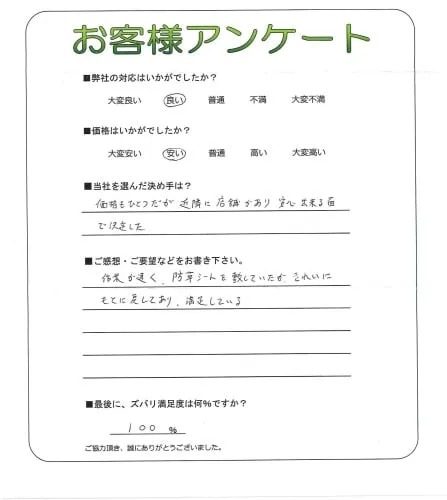 お客様アンケート
■弊社の対応はいかがでしたか？
大変良い 良い 普通 不満 大変不満
■価格はいかがでしたか？
大変安い 安い 普通 高い 大変高い
■当社を選んだ決め手は？
価格もひとつだが 近隣に店舗があり 安心出来る面
で決定した
■ご感想・ご要望などをお書き下さい。
作業が速く、防草シートを敷していたが きれいに
もとに戻してあり、満足している
■最後に、ズバリ満足度は何％ですか？
100 %
ご協力頂き、誠にありがとうございました。